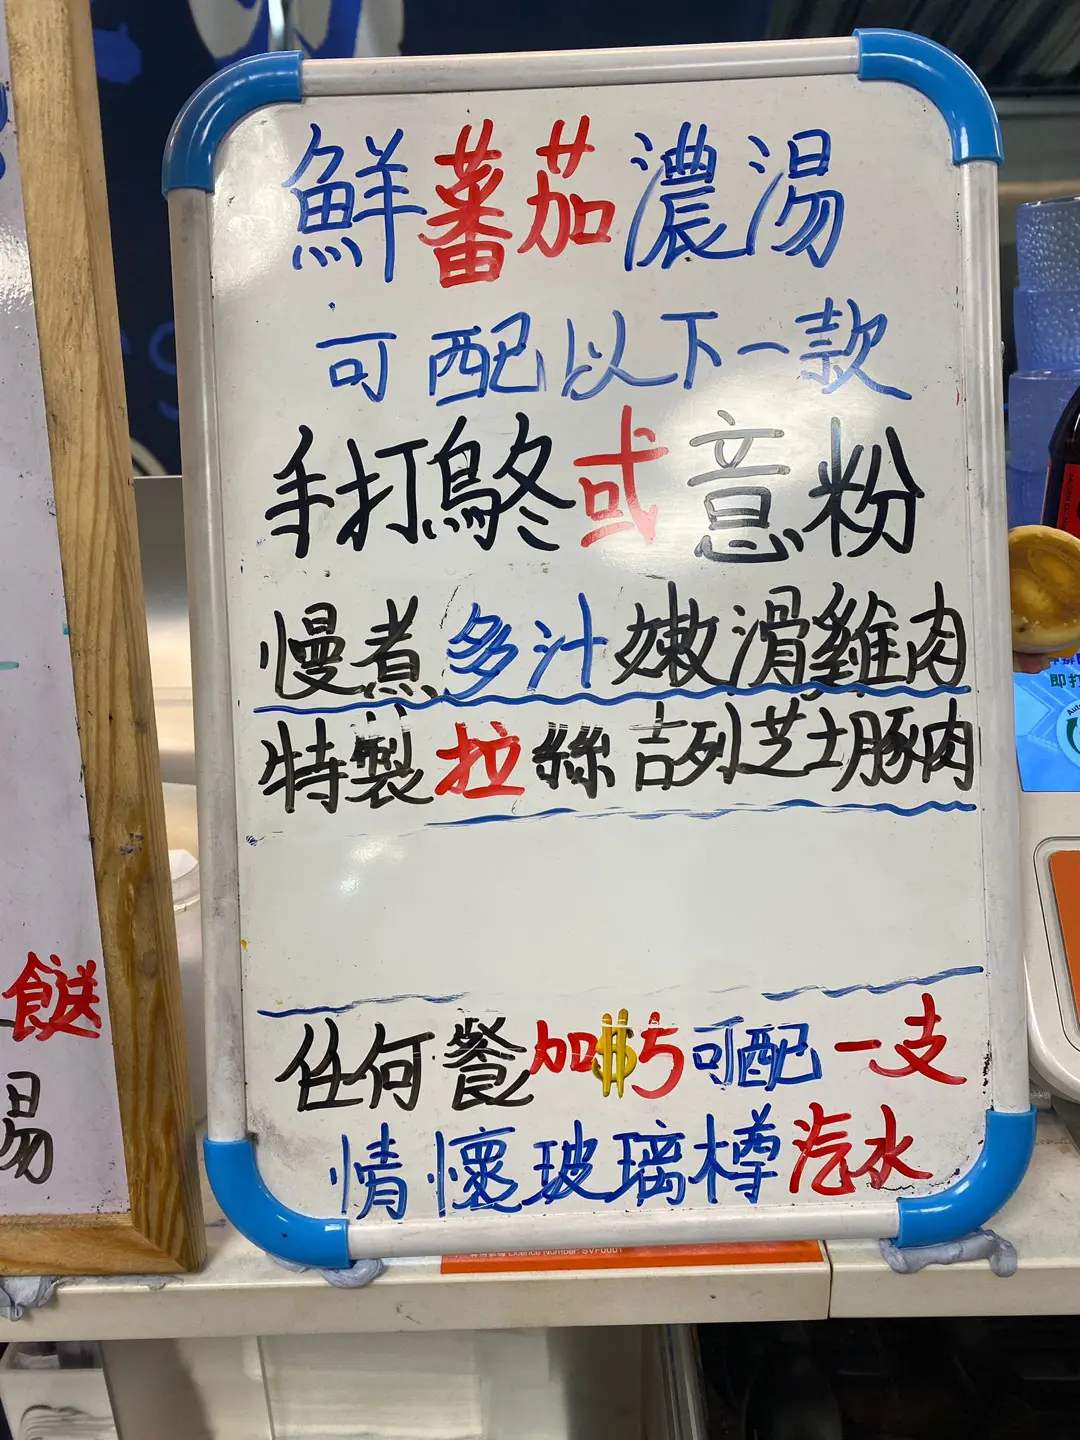 鮮蕃茄濃湯
可配以下一款
手打烏冬或意粉
慢煮多汁嫩滑雞肉
特製拉絲吉列芝士豚肉
任何餐加$5可配一支
情懷玻璃樽汽水
餸
湯
即打
Licence Number: SVF0001